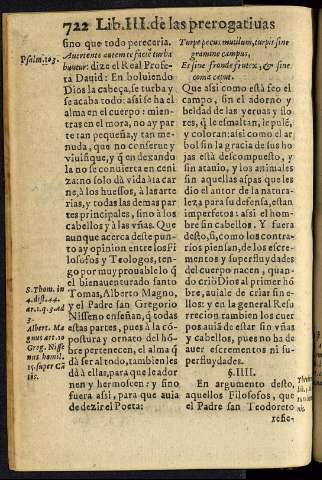 722 Lib. III. de las prerogatiuas
sino que todo pereceria.
Auertente autem te faciē turba
buntur: dize el Real Profe-
ta Dauid: En boluiendo
Dios la cabeça, se turba y
se acaba todo: assi se ha el
alma en el cuerpo: mien-
tras en el mora, no ay par
te tan pequeña, y tan me-
nuda, que no conserue y
viuifique, y q̃ en dexando
la no se conuierta en ceni
za: no solo dà vida à la car
ne, à los huessos, à las arte
rias, y todas las demas par
tes principales, sino à los
cabellos y à las vñas. Que
aunque acerca deste pun-
to ay opinion entre los Fi
losofos y Teologos, ten-
go por muy prouable lo q̃
el bienauenturado santo
Tomas, Alberto Magno,
y el Padre san Gregorio
Nisseno enseñan, q̃ todas
estas partes, pues à la cō-
postura y ornato del hō-
bre pertenecen, el alma q̃
dà ser al todo, tambien les
dà à ellas, para que le ador
nen y hermoseen: y sino
fuera assi, para que auia
de dezir el Poeta:
Psalm. 103.
S. Thom. in
4. dist. 44.
ar. 1. q. 3. Ad
3.
Albert. Ma
gnus art. 10
Greg. Nisse
nus homil.
15. super Cā
tic.
Turpe pecus mutilum, turpis sine
gramine campus,
Et sine fronde frutex, & sine
coma caput.
Que assi como està feo el
campo, sin el adorno y
beldad de las yeruas y flo
res, q̃ le esmaltan, le pulē,
y coloran: assi como el ar
bol sin la gracia de sus ho
jas està descompuesto, y
sin atauio, y los animales
sin aquellas aspas que les
dio el autor de la natura-
leza, para su defensa, estan
imperfetos: assi el hom-
bre sin cabellos. Y fuera
desto, si, como los contra-
rios piensan, de los escre-
mentos y superfluydades
del cuerpo nacen, quan-
do criò Dios al primer hō
bre, auiale de criar sin e-
llos: y en la general Resu
rreccion tambien los cuer
pos auià de estar sin vñas
y cabellos, pues no ha de
auer escrementos ni su-
perfluydades.
§. IIII.
En argumento desto,
aquellos Filosofos, que
el Padre san Teodoreto
refie-